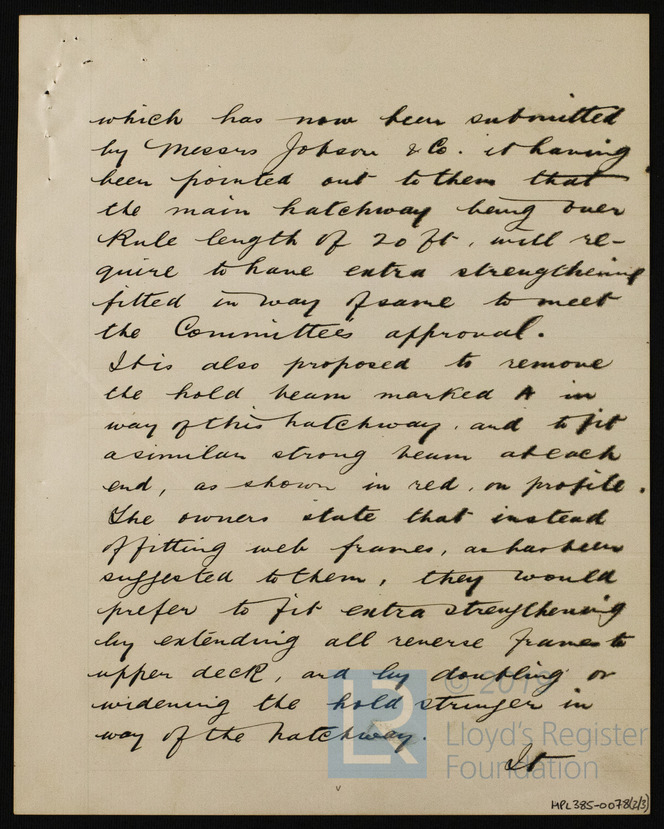 which has now been submitted
by Messrs Jobson & Co. it having
been pointed out to them that
the main hatchway being over
Rule length of 20 ft, will re-
quire to have extra strengthening
fitted in way of same to meet
the Committee's approval.
It is also proposed to remove
the hold beam marked A in
way of this hatchway, and to fit
a similar strong beam at each
end, as shown in red, on profile.
The owners state that instead
of fitting web frames, as has been
suggested to them, they would
prefer to fit extra strengthening
by extending all reverse frames to
upper deck, and by doubling or
widening the hold stringer in
way of the hatchway.
It
LR
Lloyd's Register
Foundation
HPL385-0078(2/3)